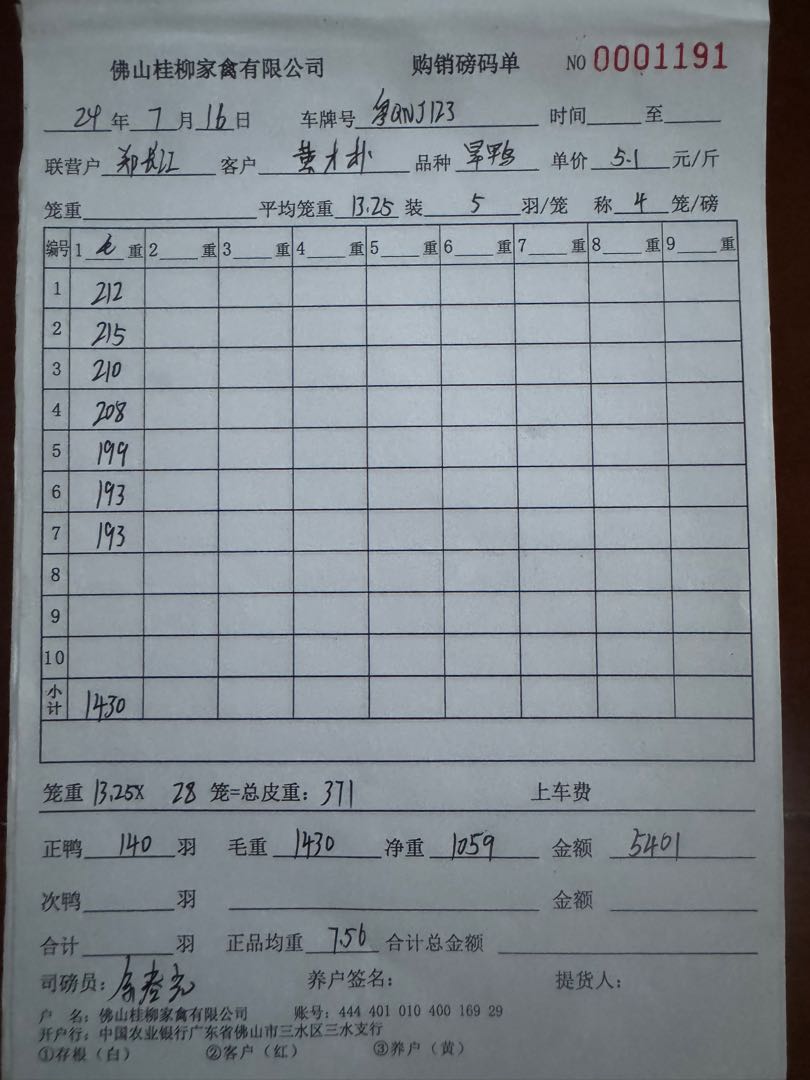 佛山桂柳家禽有限公司 购销磅码单 NO 0001191
24 年 7 月 16 日 车牌号 QNJ123 时间 至
联营户 郑长江 客户 黄才朴 品种 旱鸭 单价 5.1 元/斤
笼重 平均笼重 13.25 装 5 羽/笼 称 4 笼/磅
编号 1 毛 重 2 重 3 重 4 重 5 重 6 重 7 重 8 重 9 重
1 212
2 215
3 210
4 208
5 199
6 193
7 193
8
9
10
小计 1430
笼重 13.25X 28 笼=总皮重: 371 上车费
正鸭 140 羽 毛重 1430 净重 1059 金额 5401
次鸭 羽 金额
合计 羽 正品均重 7.56 合计总金额
司磅员: 养户签名: 提货人:
户 名: 佛山桂柳家禽有限公司 账号: 444 401 010 400 169 29
开户行: 中国农业银行广东省佛山市三水区三水支行
①存根(白) ②客户(红) ③养户(黄)